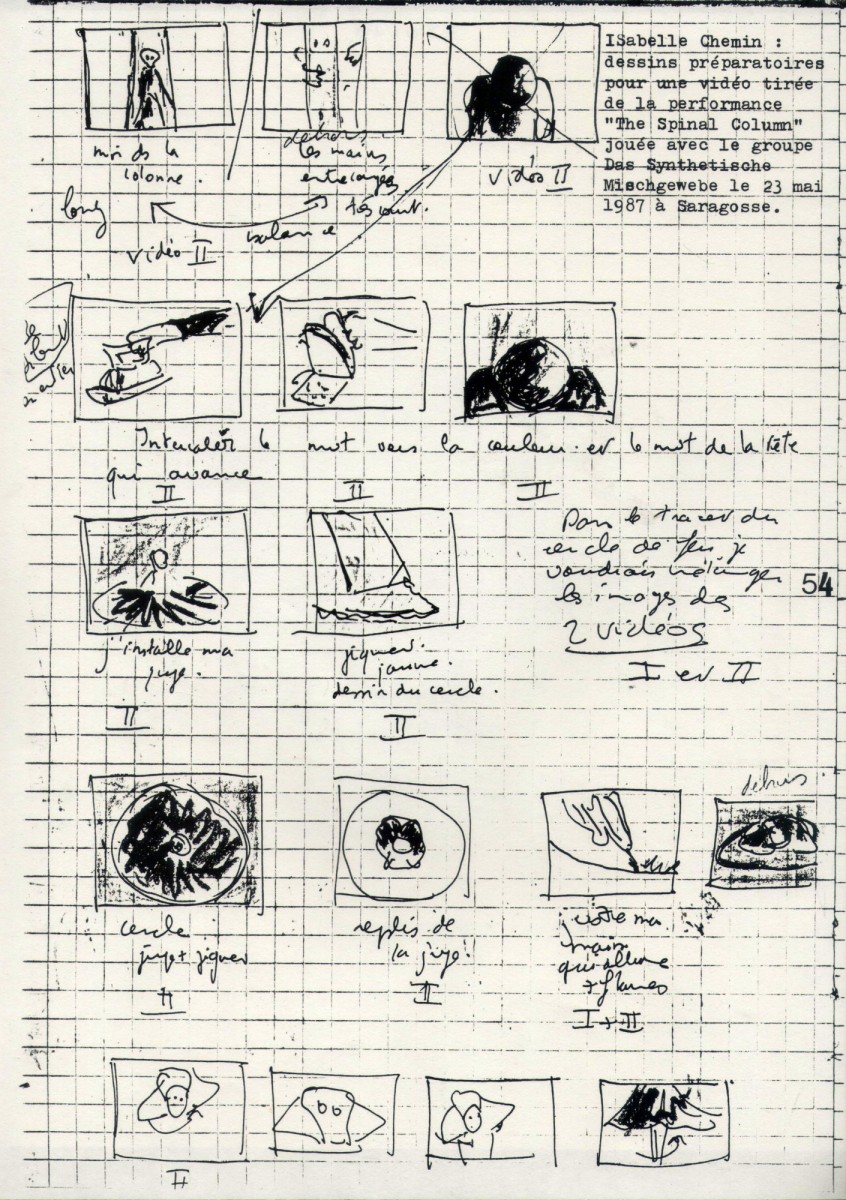 ISabelle Chemin :
dessins préparatoires
pour une vidéo tirée
de la performance
"The Spinal Column"
jouée avec le groupe
Das Synthetische
Mischgewebe le 23 mai
1987 à Saragosse.
moi ds la
colonne.
dehors
les mains
vidéo II
long
balance
vidéo II
Intercaler le mvt vers la couleur et le mvt de la tête
qui avance
II
II
II
Pour le tracer du
cercle de feu je
voudrais mélanger
les images des
2 vidéos
I et II
54
j'installe ma
jupe.
II
dessin du cercle.
II
dehors
cercle
II
replis de
la jupe
II
ma
main
qui allume
+ flammes
I + II
II